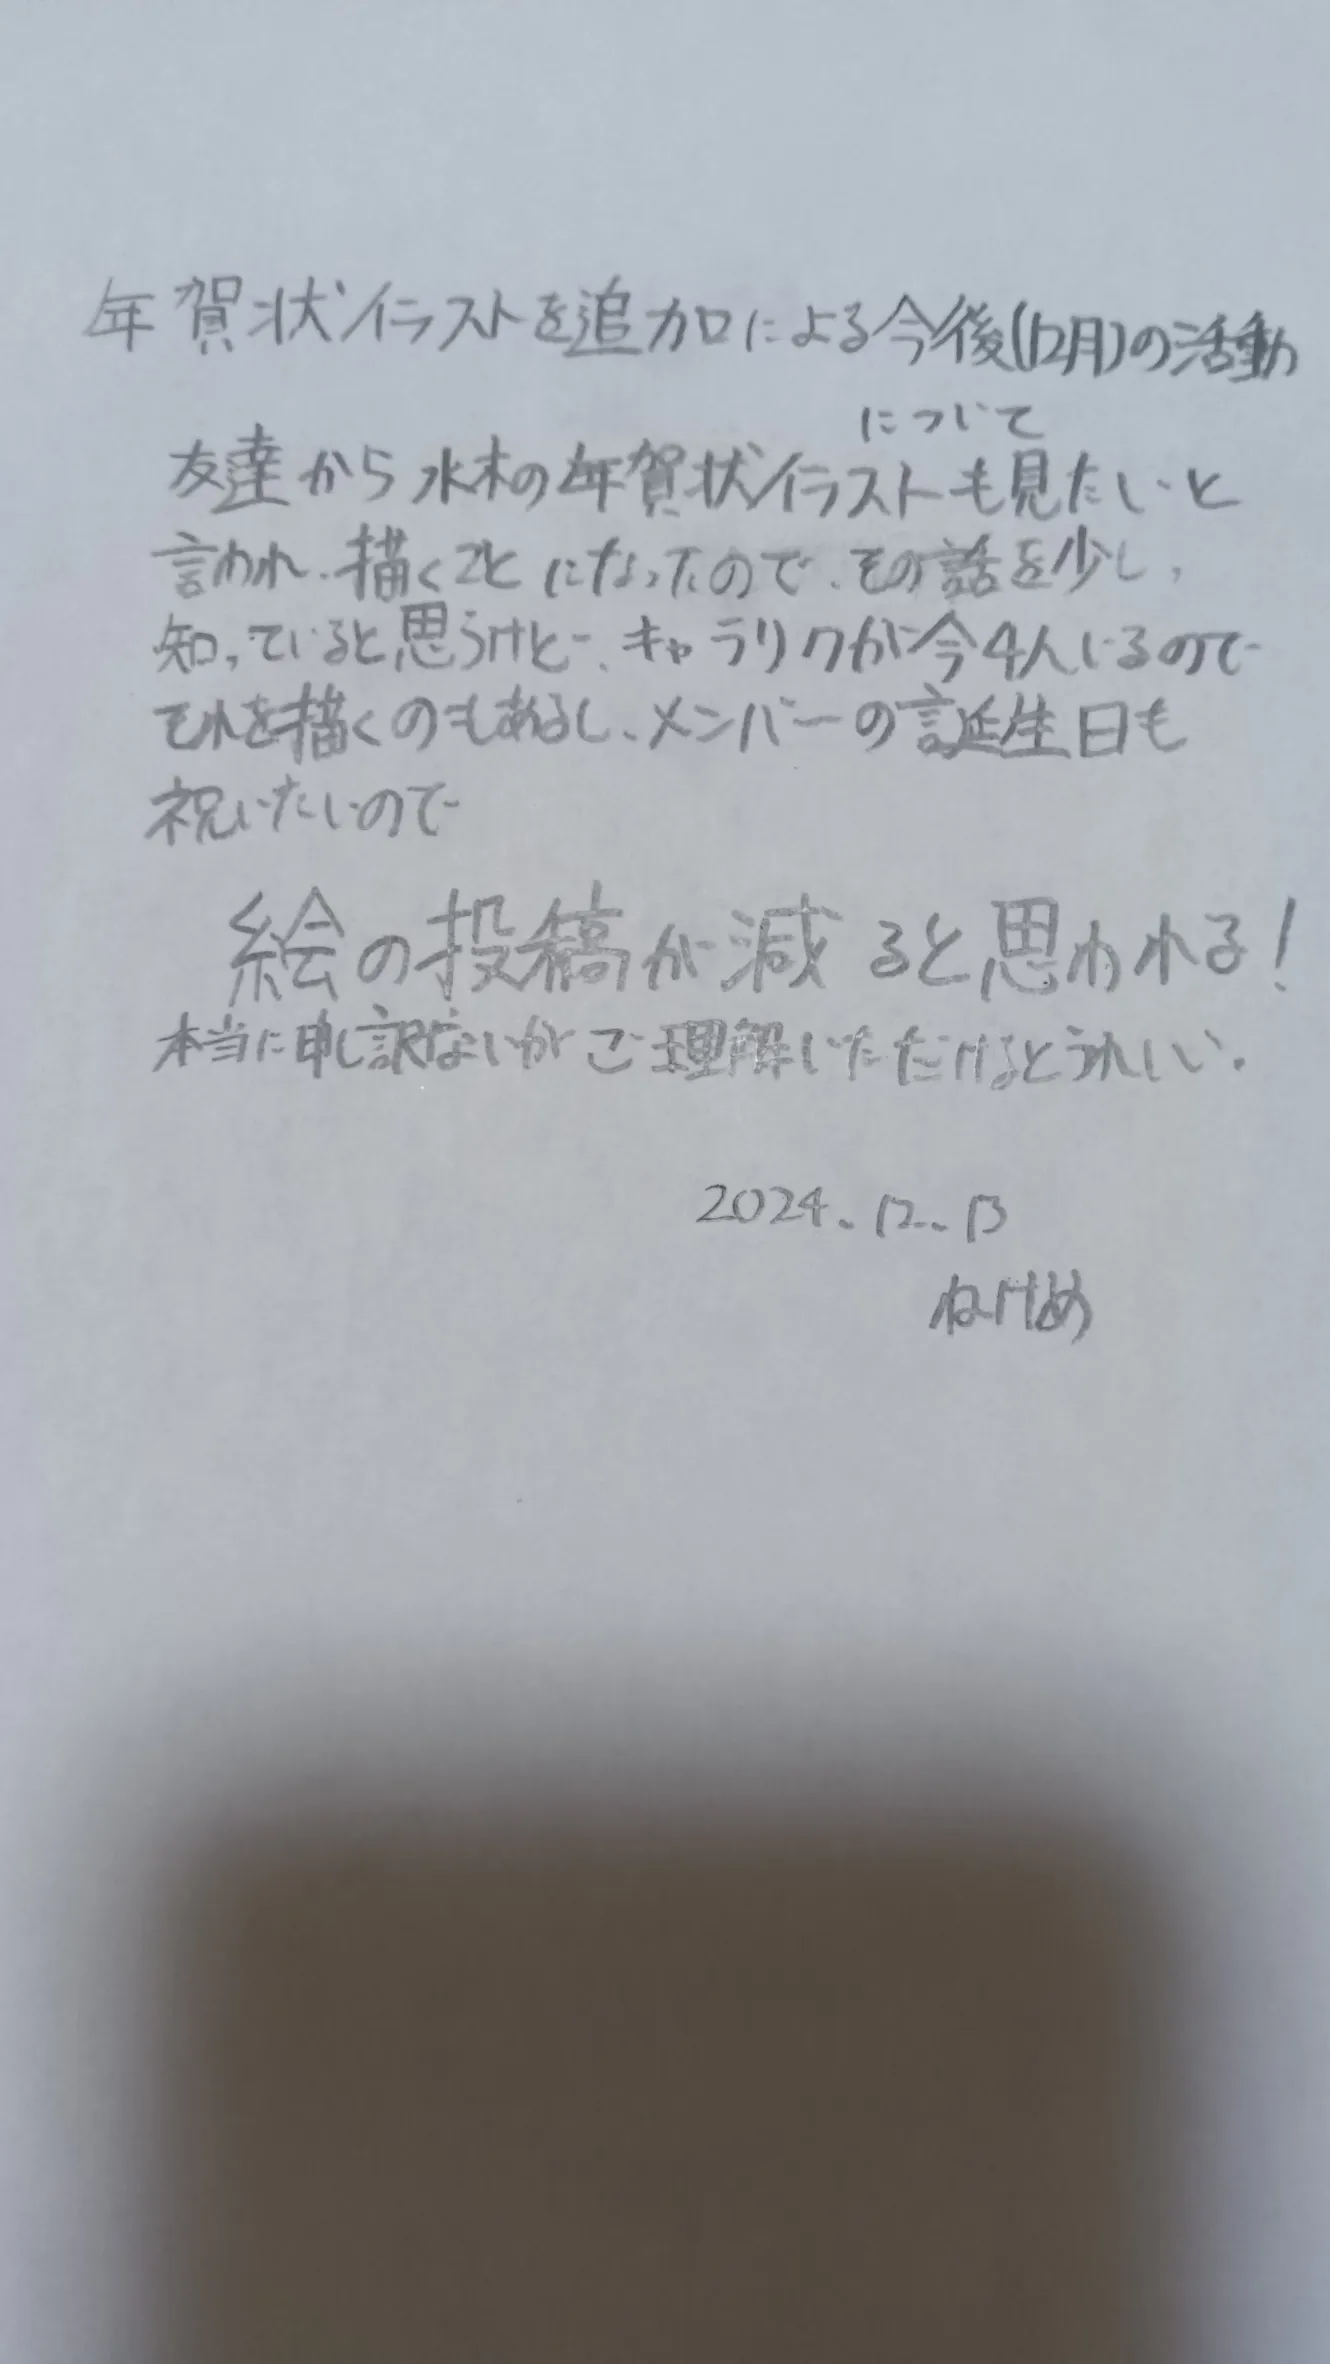 年賀状イラストを追加による今後(12月)の活動
について
友達から水木の年賀状イラストも見たいと
言われ、描くことになったので、その話を少し、
知っていると思うけど、キャラリクが今4人いるので
それを描くのもあるし、メンバーの誕生日も
祝いたいので
絵の投稿が減ると思われる!
本当に申し訳ないがご理解いただけるとうれしい。
2024.12.13
ねけめ